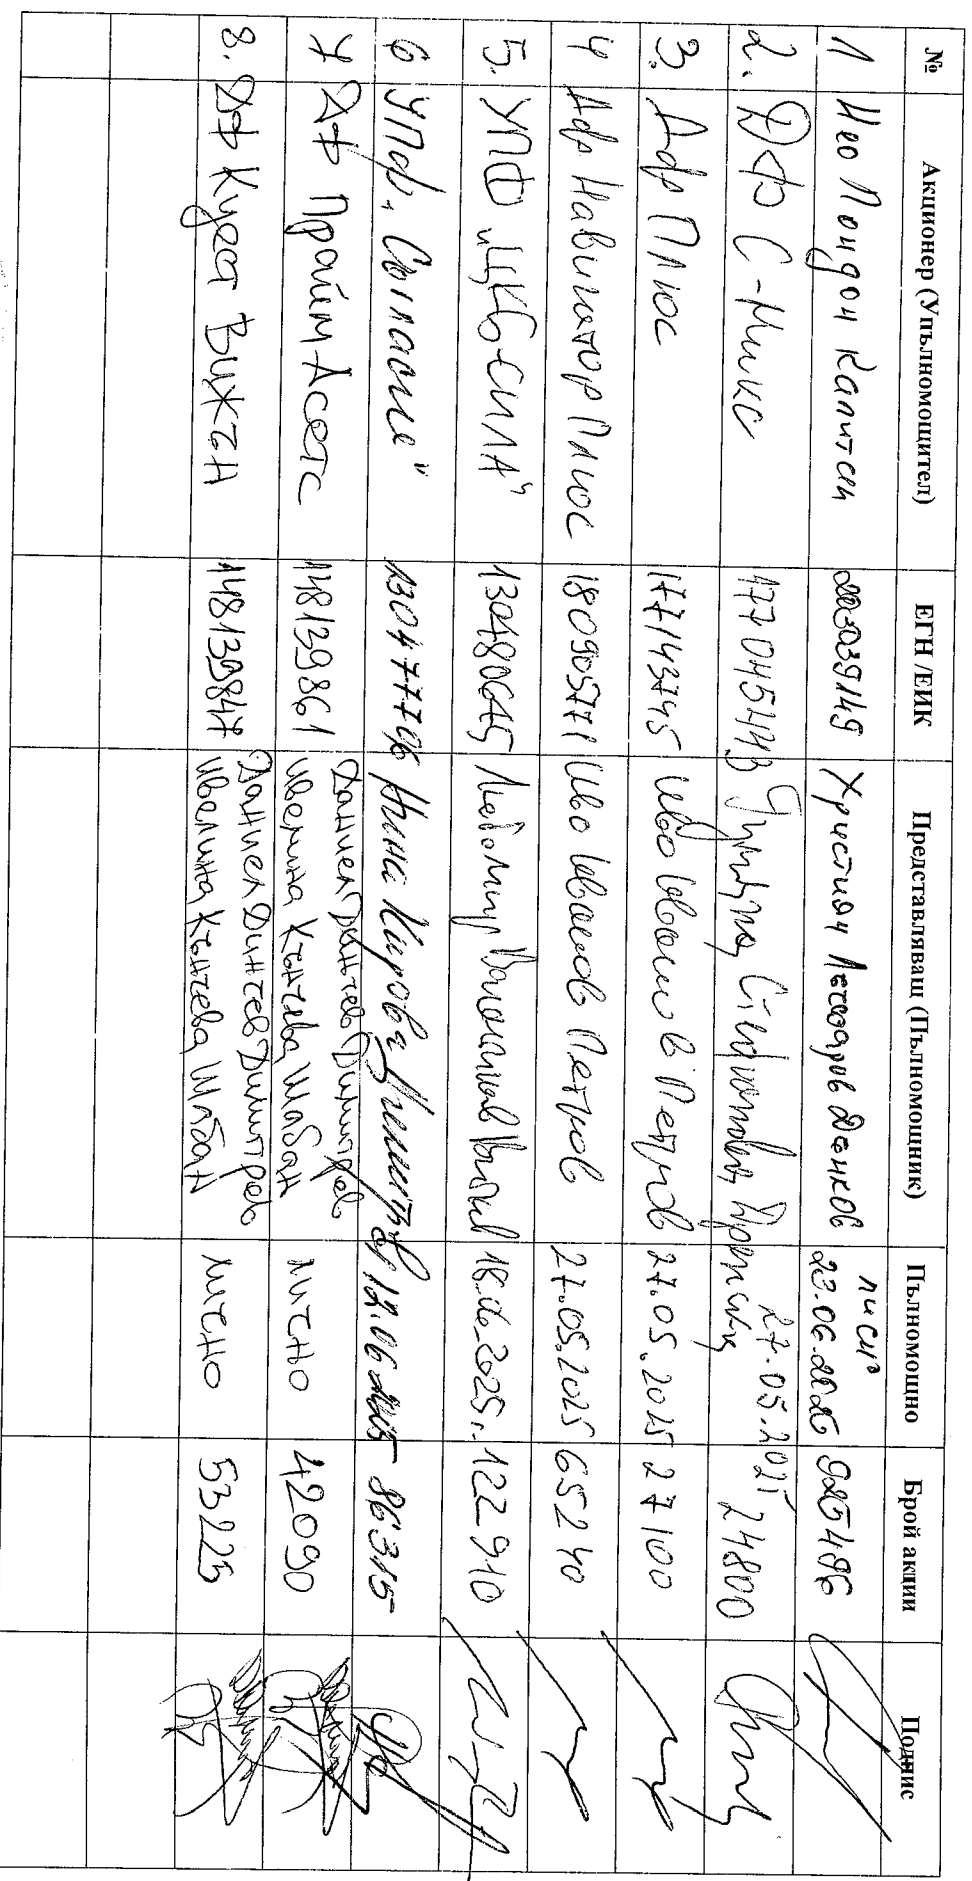 № Акционер (Упълномощител) ЕГН /ЕИК Представляващ (Пълномощник) Пълномощно Брой акции Подпис
1 Нео Лондон Капитал 203039149 Християн Денков 23.06.2025 925486
2. ДФ С-Микс 177045443 27.05.2025 24800
3. Адф Плюс 177143745 Иво Иванов Петров 27.05.2025 27100
4 Адф Навигатор Плюс 180905771 Иво Иванов Петров 27.05.2025 65240
5. УПФ „ЦКБ-СИЛА“ 130480645 Любомир 18.06.2025г. 122910
6 УПФ „Съгласие“ 130477706 Нина Кирова 12.06.2025 86315
7 ДФ Прайм Асетс 148139861 Даниел Дончев Димитров
Ивелина Кънчева Шабан лично 42090
8. ДФ Куест Вижън 148139847 Даниел Дончев Димитров
Ивелина Кънчева Шабан лично 53225